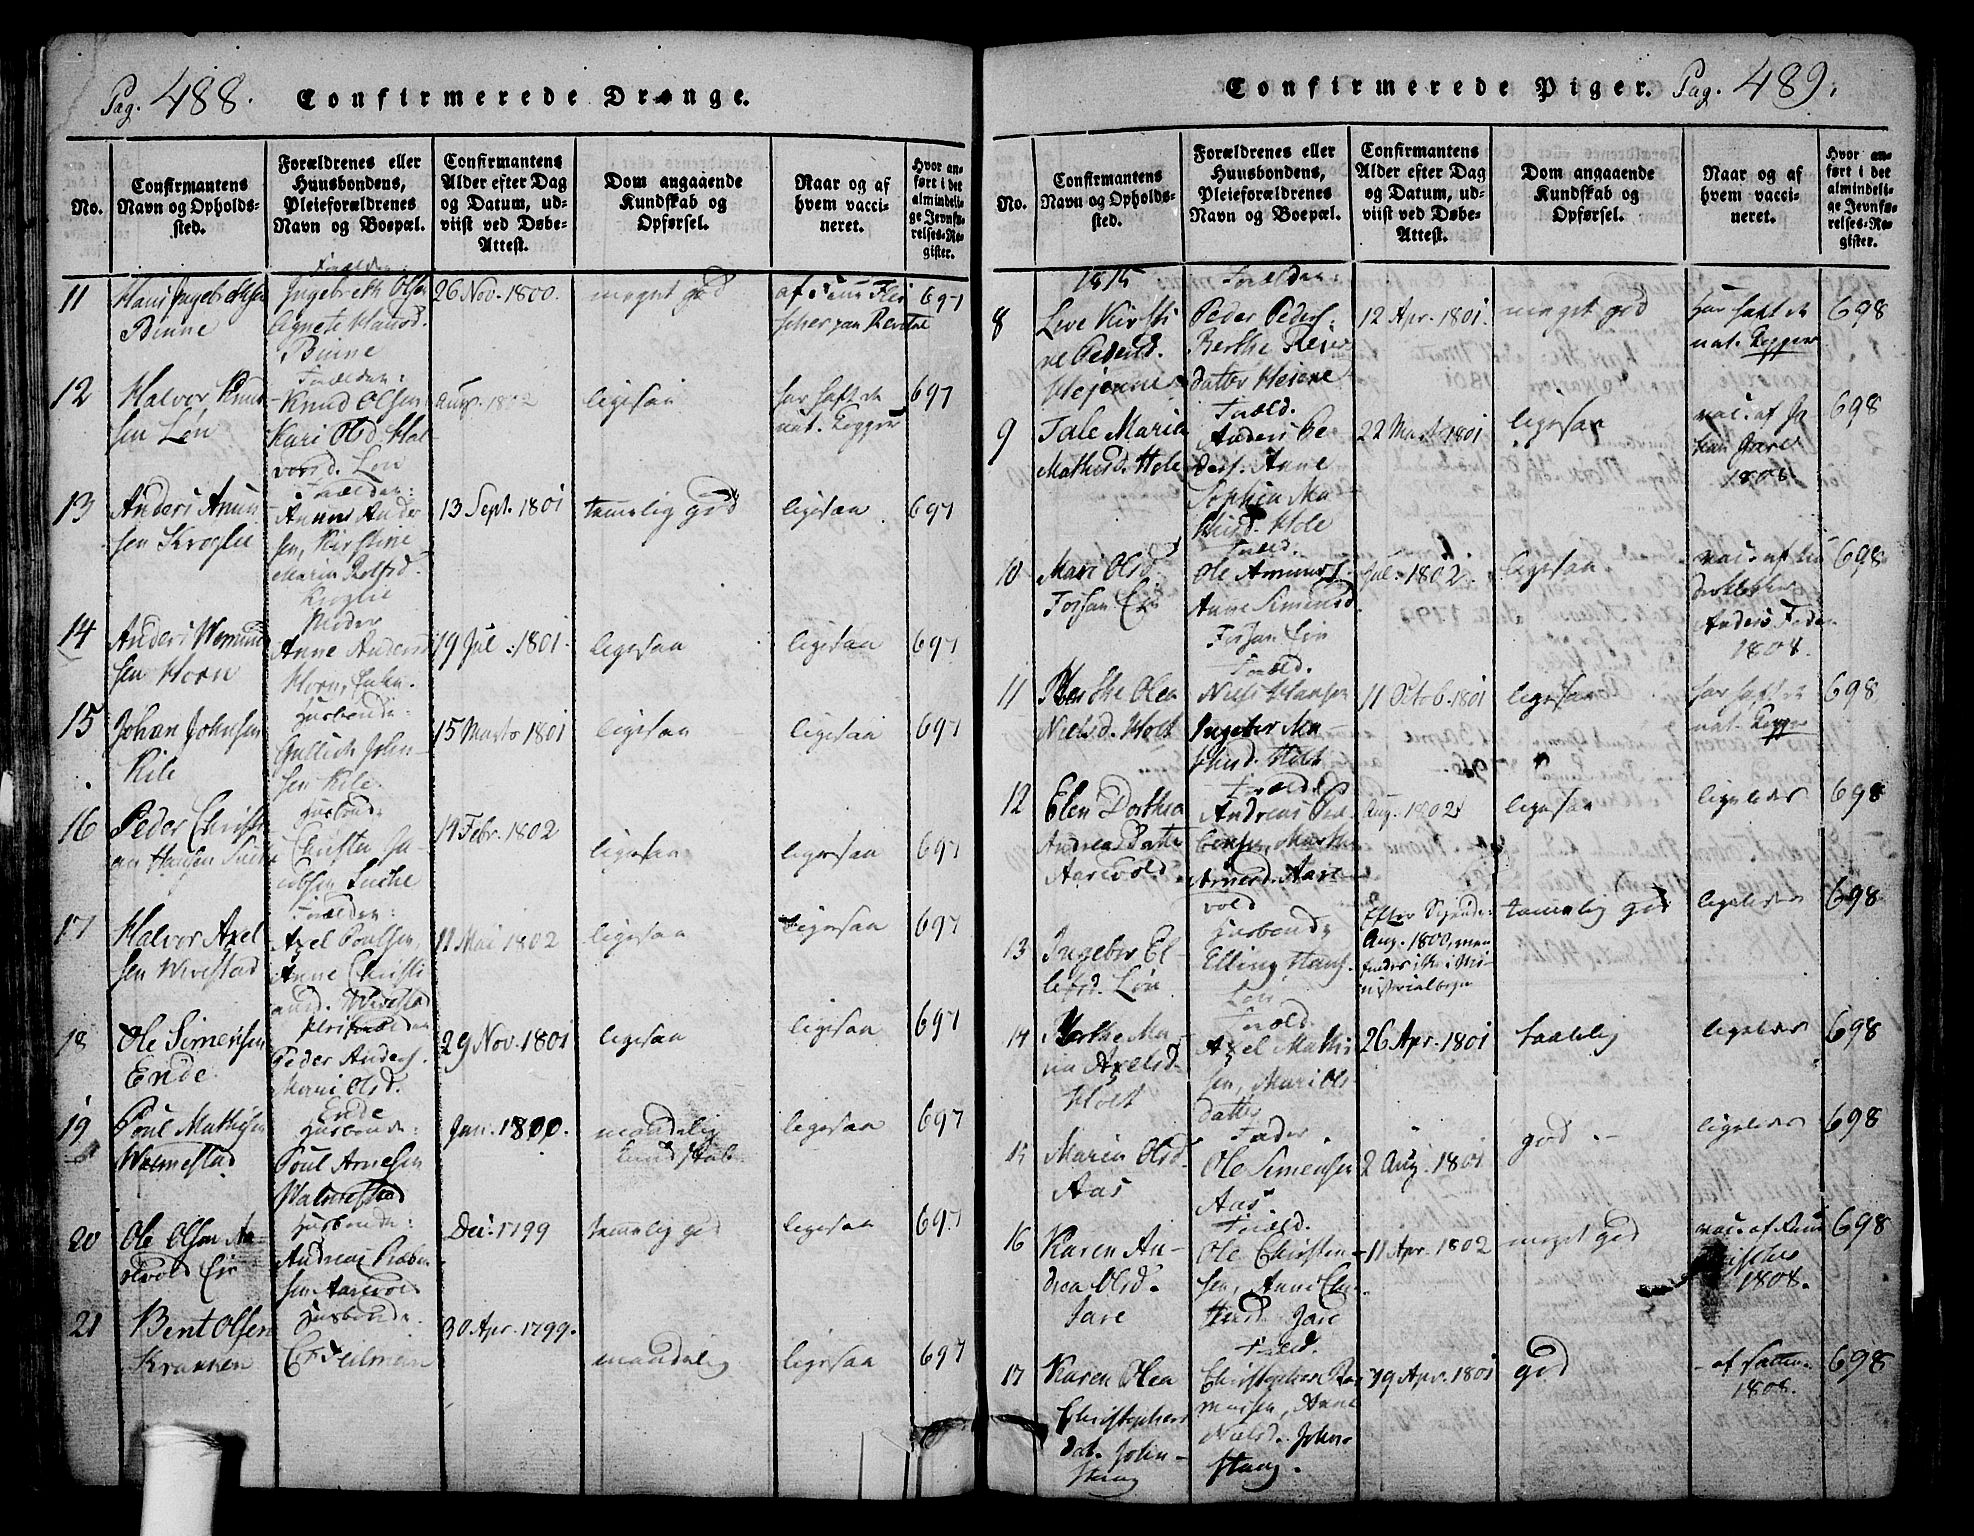 Pag. 488. Confirmerede Drenge.
No.
Confirmantens
Navn og Opholds-
sted.
Forældrenes eller
Huusbondens,
Pleieforældrenes
Navn og Boepæl.
Confirmantens
Alder efter Dag
og Datum, ud-
viist ved Døbe-
Attest.
Dom angaaende
Kundskab og
Opførsel.
Naar og af
hvem vacci-
neret.
Hvor an-
ført i det
almindeli-
ge Jevnfø-
relses-Re-
gister.
11
Hans Ingebrektsen
Binne
Forældre
Ingebrekt Olsen
Agnete Hansd.
Binne
26 Nov. 1800.
meget god
697
12
Halvor Knud-
sen Løn
Forældre:
Knud Olsen
Kari Olsd. Hal-
vorsd. Løn
Aug. 1802
ligesaa
har havt de
nat. Kopper
697
13
Anders Anun-
sen Kroglie
Forældre:
Ander-
sen, Kirstine
Maria Rolfsd.
Kroglie
13 Sept. 1801
temmelig god
ligesaa
697
14
Anders Wemund-
sen Horn
Moder
Anne Anders
Horn, Enke.
19 Jul. 1801.
ligesaa
ligesaa
697
15
Johan Johnsen
Kile
Husbonde:
Gullich John-
sen Kile.
15 Marts 1801
ligesaa
ligesaa
697
16
Peder Christi-
an Hansen
Husbond:
Christen Ja-
cobsen
19 Febr. 1802
ligesaa
ligesaa
697
17
Halvor Axel-
sen Wivestad
Forældre:
Axel Poulsen,
Anne Christi-
ansd. Wivestad
11 Mai 1802
ligesaa
ligesaa
697
18
Ole Simensen
Ende
Pleieforældre
Peder Anders.
Mari Olsd.
Ende
29 Nov. 1801
ligesaa
ligesaa
697
19
Poul Mathisen
Walmestad
Husbonde:
Poul Arnesen
Walmestad
Jan. 1800.
maadelig
Kundskab
ligesaa
697
20
Ole Olsen Aa-
revold Eie
Husbonde:
Andreas
sen Aarevold
Dec. 1799
temmelig god
ligesaa
697
21
Bent Olsen
Husbonde.
30 Apr. 1799.
maadelig
ligesaa
697
Confirmerede Piger. Pag. 489.
No.
Confirmantens
Navn og Opholds-
sted.
Forældrenes eller
Huusbondens,
Pleieforældrenes
Navn og Boepæl.
Confirmantens
Alder efter Dag
og Datum, ud-
viist ved Døbe-
Attest.
Dom angaaende
Kundskab og
Opførsel.
Naar og af
hvem vacci-
neret.
Hvor an-
ført i det
almindeli-
ge Jevnfø-
relses-Re-
gister.
1815
8
Live Kirsti-
ne Pedersd.
Forældre:
Peder Peders.
Berthe
datter
12 Apr. 1801.
meget god
har havt de
nat. Kopper
698
9
Tale Maria
Mathisd. Hole
Foræld.
Anders Pe-
ders. Anne
Sophia Ma-
thisd. Hole
22 Marts 1801
ligesaa
vac. af
1808.
698
10
Mari Olsd.
Foræld.
Ole
Anne Simensd.
Jul. 1802.
ligesaa
vac. af
Anders
1808.
698
11
Berthe Olea
Nielsd. Holt
Foræld.
Niels Hansen
Ingebor Ma-
thisd. Holt
11 Octob. 1801
ligesaa
har havt de
nat. Kopper
698
12
Elen Dorthea
Andreasdatter
Aarevold.
Foræld.
Andreas
Arnesd. Aare-
vold
Aug. 1802
ligesaa
ligeledes
698
13
Ingebor El-
lefsd. Løn
Husbonde
Elling Hans.
Løn
Efter Sigende
Aug. 1800, men
findes ikke i Mi-
nisterialbogen
temmelig god
ligeledes
698
14
Berthe Ma-
ria Axelsd.
Holt
Foræld.
Axel Mathi-
sen, Mari Ols-
datter
26 Apr. 1801
taalelig
ligeledes
698
15
Maria Olsd.
Aas
Fader
Ole Simensen
Aas.
2 Aug. 1801
god.
ligeledes
698
16
Karen An-
drea Olsd.
Jare
Foræld.
Ole Christen-
sen, Anne
Jare
11 Apr. 1802
meget god
vac. af
1808.
698
17
Karen Olea
Christophers-
dat. John-
Foræld.
Christopher Ras-
musen, Anne
Nielsd. John-
19 Apr. 1801
god
1808.
698